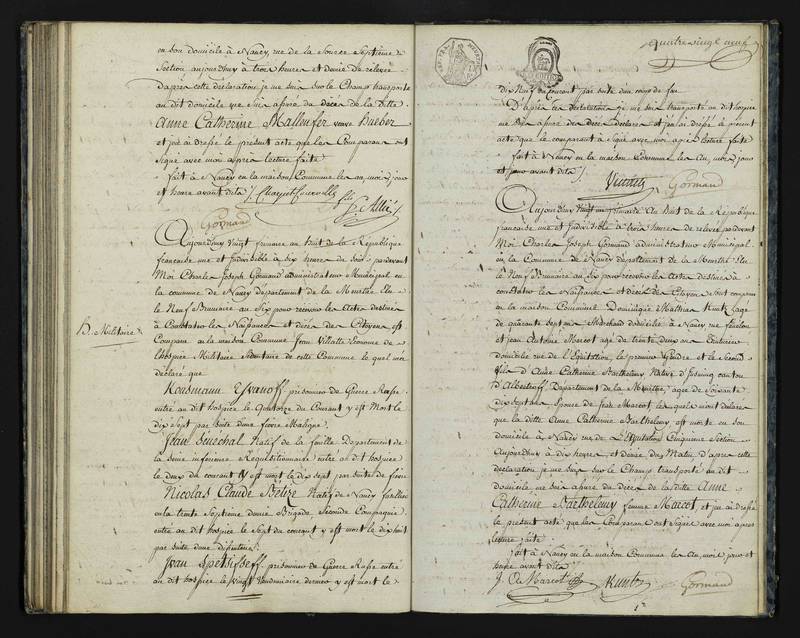 en son domicile à Nancy, rue de la Source Septième
Section aujourdhuy à trois heures et demie de relevé
d'après cette déclaration je me suis sur le Champ transporté
au dit domicile je me suis assuré du décès de la ditte
Anne Catherine Mallenfer veuve Hueber
et j'ai dressé le présent acte que les Comparans ont
Signé avec moi après lecture faite
fait à Nancy en la maison Commune les an, mois, jour
et heure avant dits
Gormand
Aujourdhuy Vingt frimaire an huit de la République
française une et Indivisible à Six heures de soir pardevant
Moi Charles Joseph Gormand administrateur Municipal en
la commune de Nancy département de la Meurthe Elu
le Neuf Brumaire an Six pour recevoir les Actes destinés
à Constater les Naissances et décès des Citoyens est
H. Militaire
Comparu en la maison Commune Jean Villatte Econome de
l'hospice Militaire Sédentaire de cette Commune lequel m'a
déclaré que
Kossmann Yvanoff prisonnier de Guerre Russe
entré au dit hospice le Quatorze du Courant y est Mort le
dix Sept par suite d'une fievre Maligne.
Jean Sénéchal Natif de la feuille Département de
la Seine inférieure Réquisitionnaire entré au dit hospice
le deux du courant y est mort le dix sept par suite de fievre
Nicolas Claude Belize Natif de Nancy fusillier
en la trente Septieme demie Brigade Seconde Compagnie
entré au dit hospice le Sept du courant y est mort le dix huit
par suite d'une
Jean Spetsifseff prisonnier de Guerre Russe entré
au dit hospice le Vingt Vendemiaire dernier y est mort le
quatre vingt neuf
dix Neuf du courant par suite d'un coup de feu
D'après ces déclarations je me suis transporté au dit hospice
me suis assuré des décès déclarés et j'ai dressé le présent
acte que le comparant a Signé avec moi après lecture faite
fait à Nancy en la maison Commune les an, mois, jour
et jour avant dits
Gormand
Aujourdhuy Vingt un frimaire An huit de la République
française une et Indivisible à trois heures de relevé pardevant
Moi Charles Joseph Gormand administrateur Municipal
en la Commune de Nancy département de la Meurthe Elu
le Neuf Brumaire an Six pour recevoir les Actes destinés à
constater les Naissances et décès des Citoyens sont comparus
en la maison Commune Dominique Mathias Kuntz agé
de quarante sept ans Marchand domicilié à Nancy rue fénélon
et jean Antoine Marcot agé de trente deux ans
domicilié rue de l'Equitation, le premier Gendre et le Second
fils d'Anne Catherine Barthelemy Native d'Insming canton
d'Albestroff Département de la Meurthe, agée de Soixante
dix sept ans Epouse de Jean Marcot lesquels m'ont déclaré
que la ditte Anne Catherine Barthelemy est morte en son
domicile à Nancy rue de l'Equitation Cinquieme Section
Aujourdhuy à dix heures et demie du Matin, d'après cette
déclaration je me suis sur le Champ transporté au dit
domicile me suis assuré du décès de la ditte Anne
Catherine Barthelemy femme Marcot, et j'ai dressé
le présent acte que les Comparans ont Signé avec moi après
lecture faite
fait à Nancy en la maison Commune les an, mois jour et
heure avant dits
Marcot Kuntz Gormand